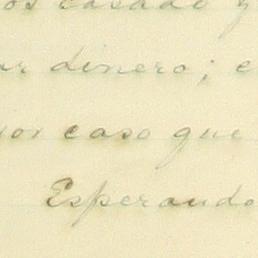 os casado y
ar dinero; e
por caso que
Esperando